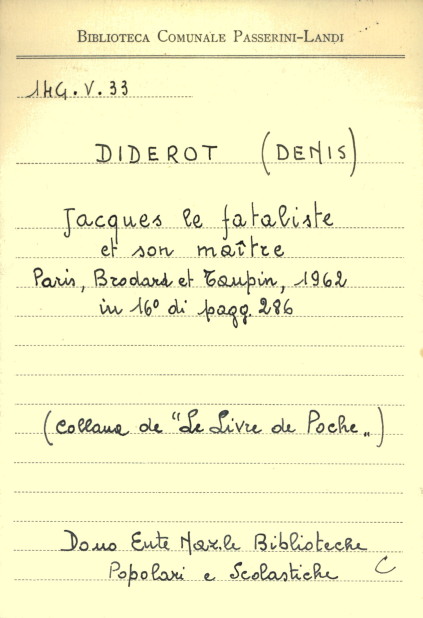 BIBLIOTECA COMUNALE PASSERINI-LANDI
14G.V.33
DIDEROT (DENIS)
Jacques le fataliste
et son maître
Paris, Brodard et Taupin, 1962
in 16º di pagg. 286
(collana de "Le Livre de Poche„)
Dono Ente Naz.le Biblioteche
Popolari e Scolastiche C